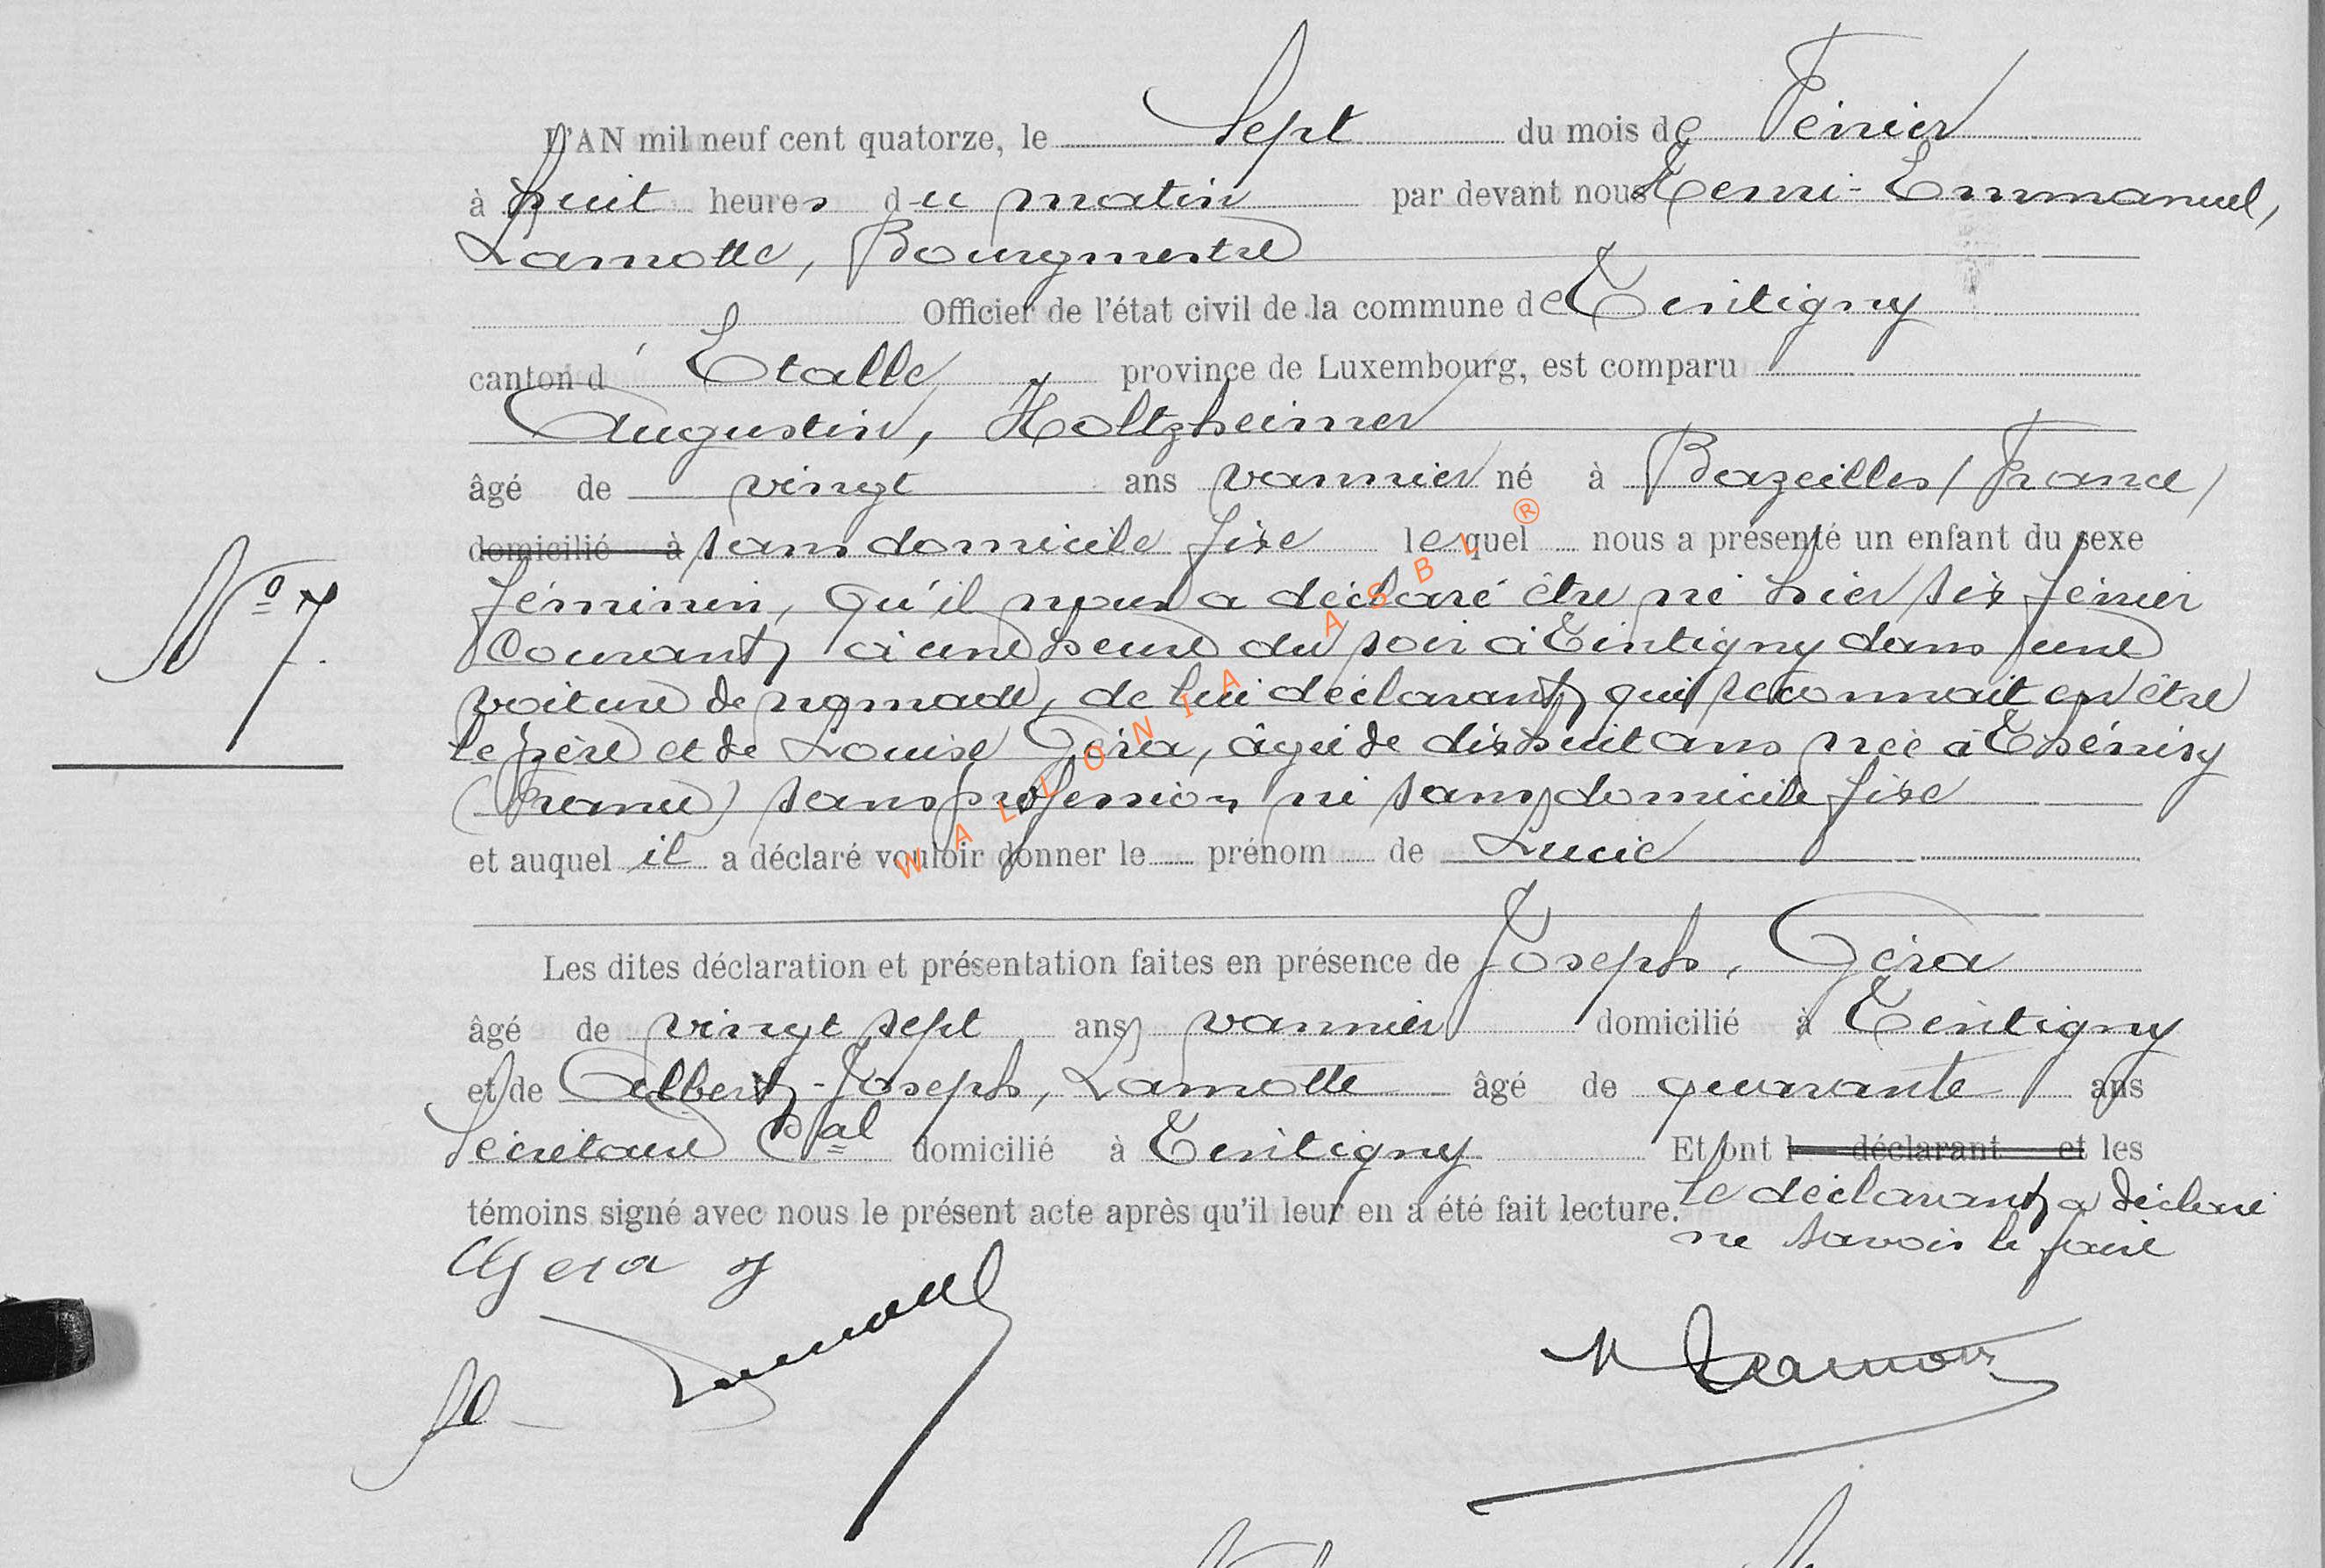 L'AN mil neuf cent quatorze, le Sept du mois de Février
à huit heures du matin par devant nous Henri-Emmanuel,
Lamotte, Bourgmestre
Officier de l'état civil de la commune de Tintigny
canton d'Etalle, province de Luxembourg, est comparu
Augustin, Holtzheimer
âgé de vingt ans vannier né à Bazeilles (France)
domicilié à sans domicile fixe lequel nous a présenté un enfant du sexe
féminin, qu'il nous a déclaré être né hier six février
N° 7
courant, à une heure du soir à Tintigny dans une
voiture de nomade, de lui déclarant, qui reconnait en être
le père et de Louise Géra, âgée de dixhuit ans née à Thénisy
(France) sans profession ni sans domicile fixe
et auquel il a déclaré vouloir donner le prénom de Lucie
Les dites déclaration et présentation faites en présence de Joseph, Géra
âgé de vingt sept ans, vannier domicilié à Tintigny
et de Albert-Joseph, Lamotte âgé de quarante ans
Secrétaire Cal domicilié à Tintigny Et ont l déclarant et les
témoins signé avec nous le présent acte après qu'il leur en a été fait lecture. Le déclarant, a déclaré
ne savoir le faire
Gera J
WALLONIA ASBL ®